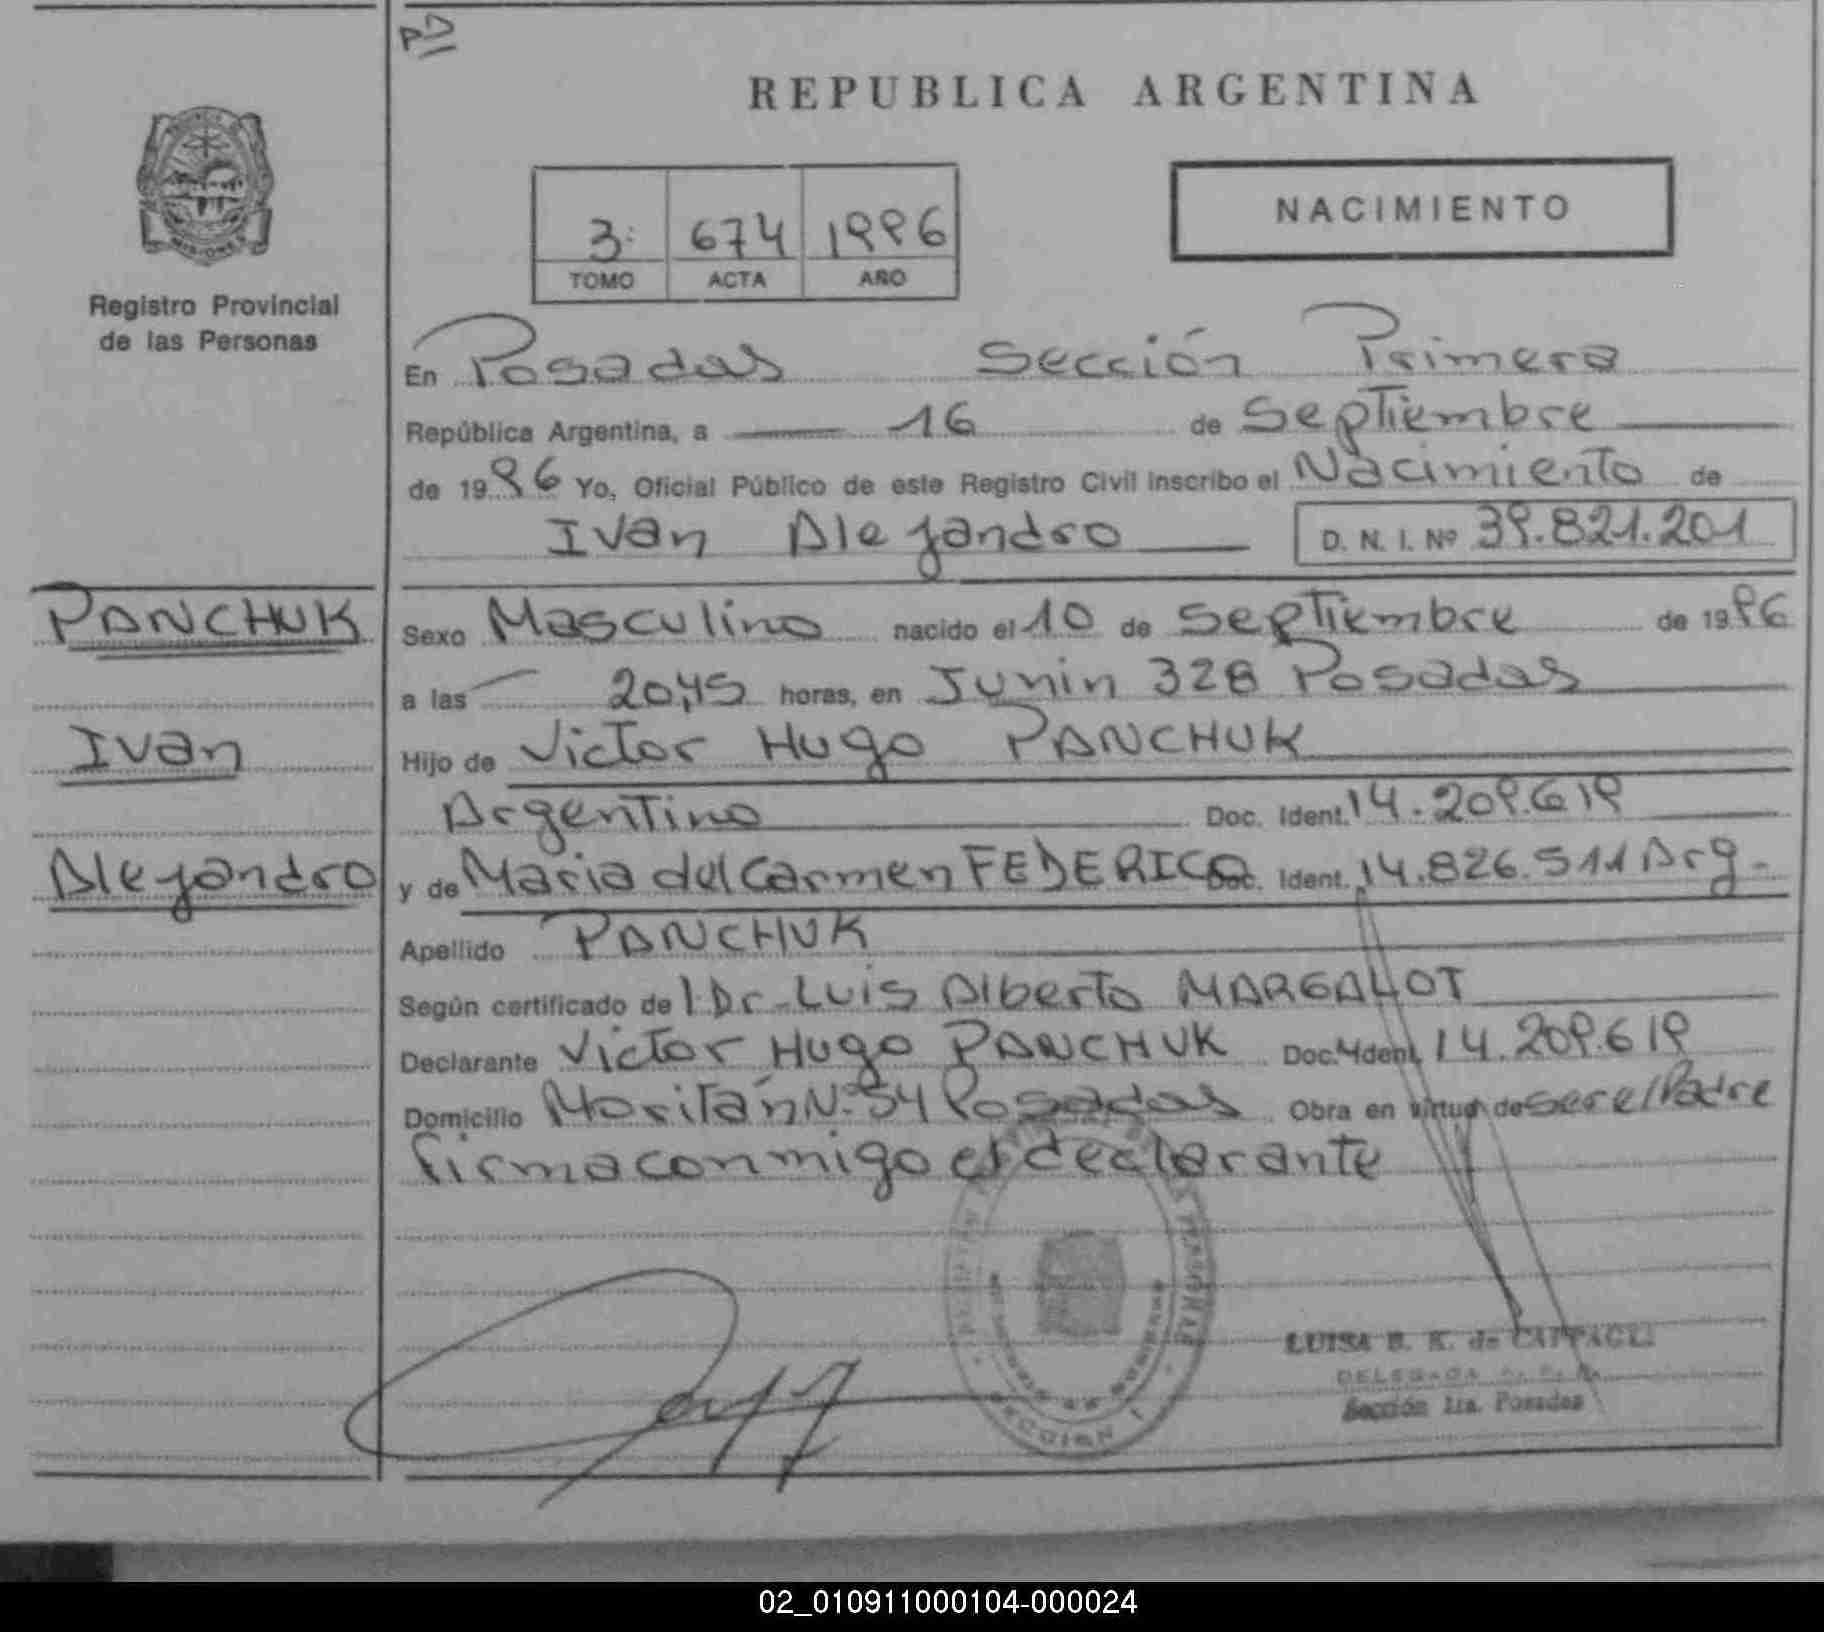 PD
REPUBLICA ARGENTINA
NACIMIENTO
3: 674 1996
TOMO ACTA AÑO
MISIONES
Registro Provincial
de las Personas
En Posadas Sección Primera
República Argentina, a 16 de Septiembre
de 1996 Yo, Oficial Público de este Registro Civil inscribo el Nacimiento de
Ivan Alejandro D. N. I. Nº 39.821.201
PANCHUK
Ivan
Alejandro
Sexo Masculino nacido el 10 de Septiembre de 1996
a las 20,45 horas, en Junin 328 Posadas
Hijo de Victor Hugo PANCHUK
Argentino Doc. Ident. 14.209.619
y de Maria del Carmen FEDERICO Doc. Ident. 14.826.511 Arg.
Apellido PANCHUK
Según certificado de l. Dr. Luis Alberto MARGALOT
Declarante Victor Hugo PANCHUK Doc. Ident. 14.209.619
Domicilio Moritán Nº 54 Posadas Obra en virtud de ser el Padre
firma conmigo el declarante
PERSONAS
SECCION 1
LUISA B. K. de
DELEGADA
Sección 1ra. Posadas
02_010911000104-000024